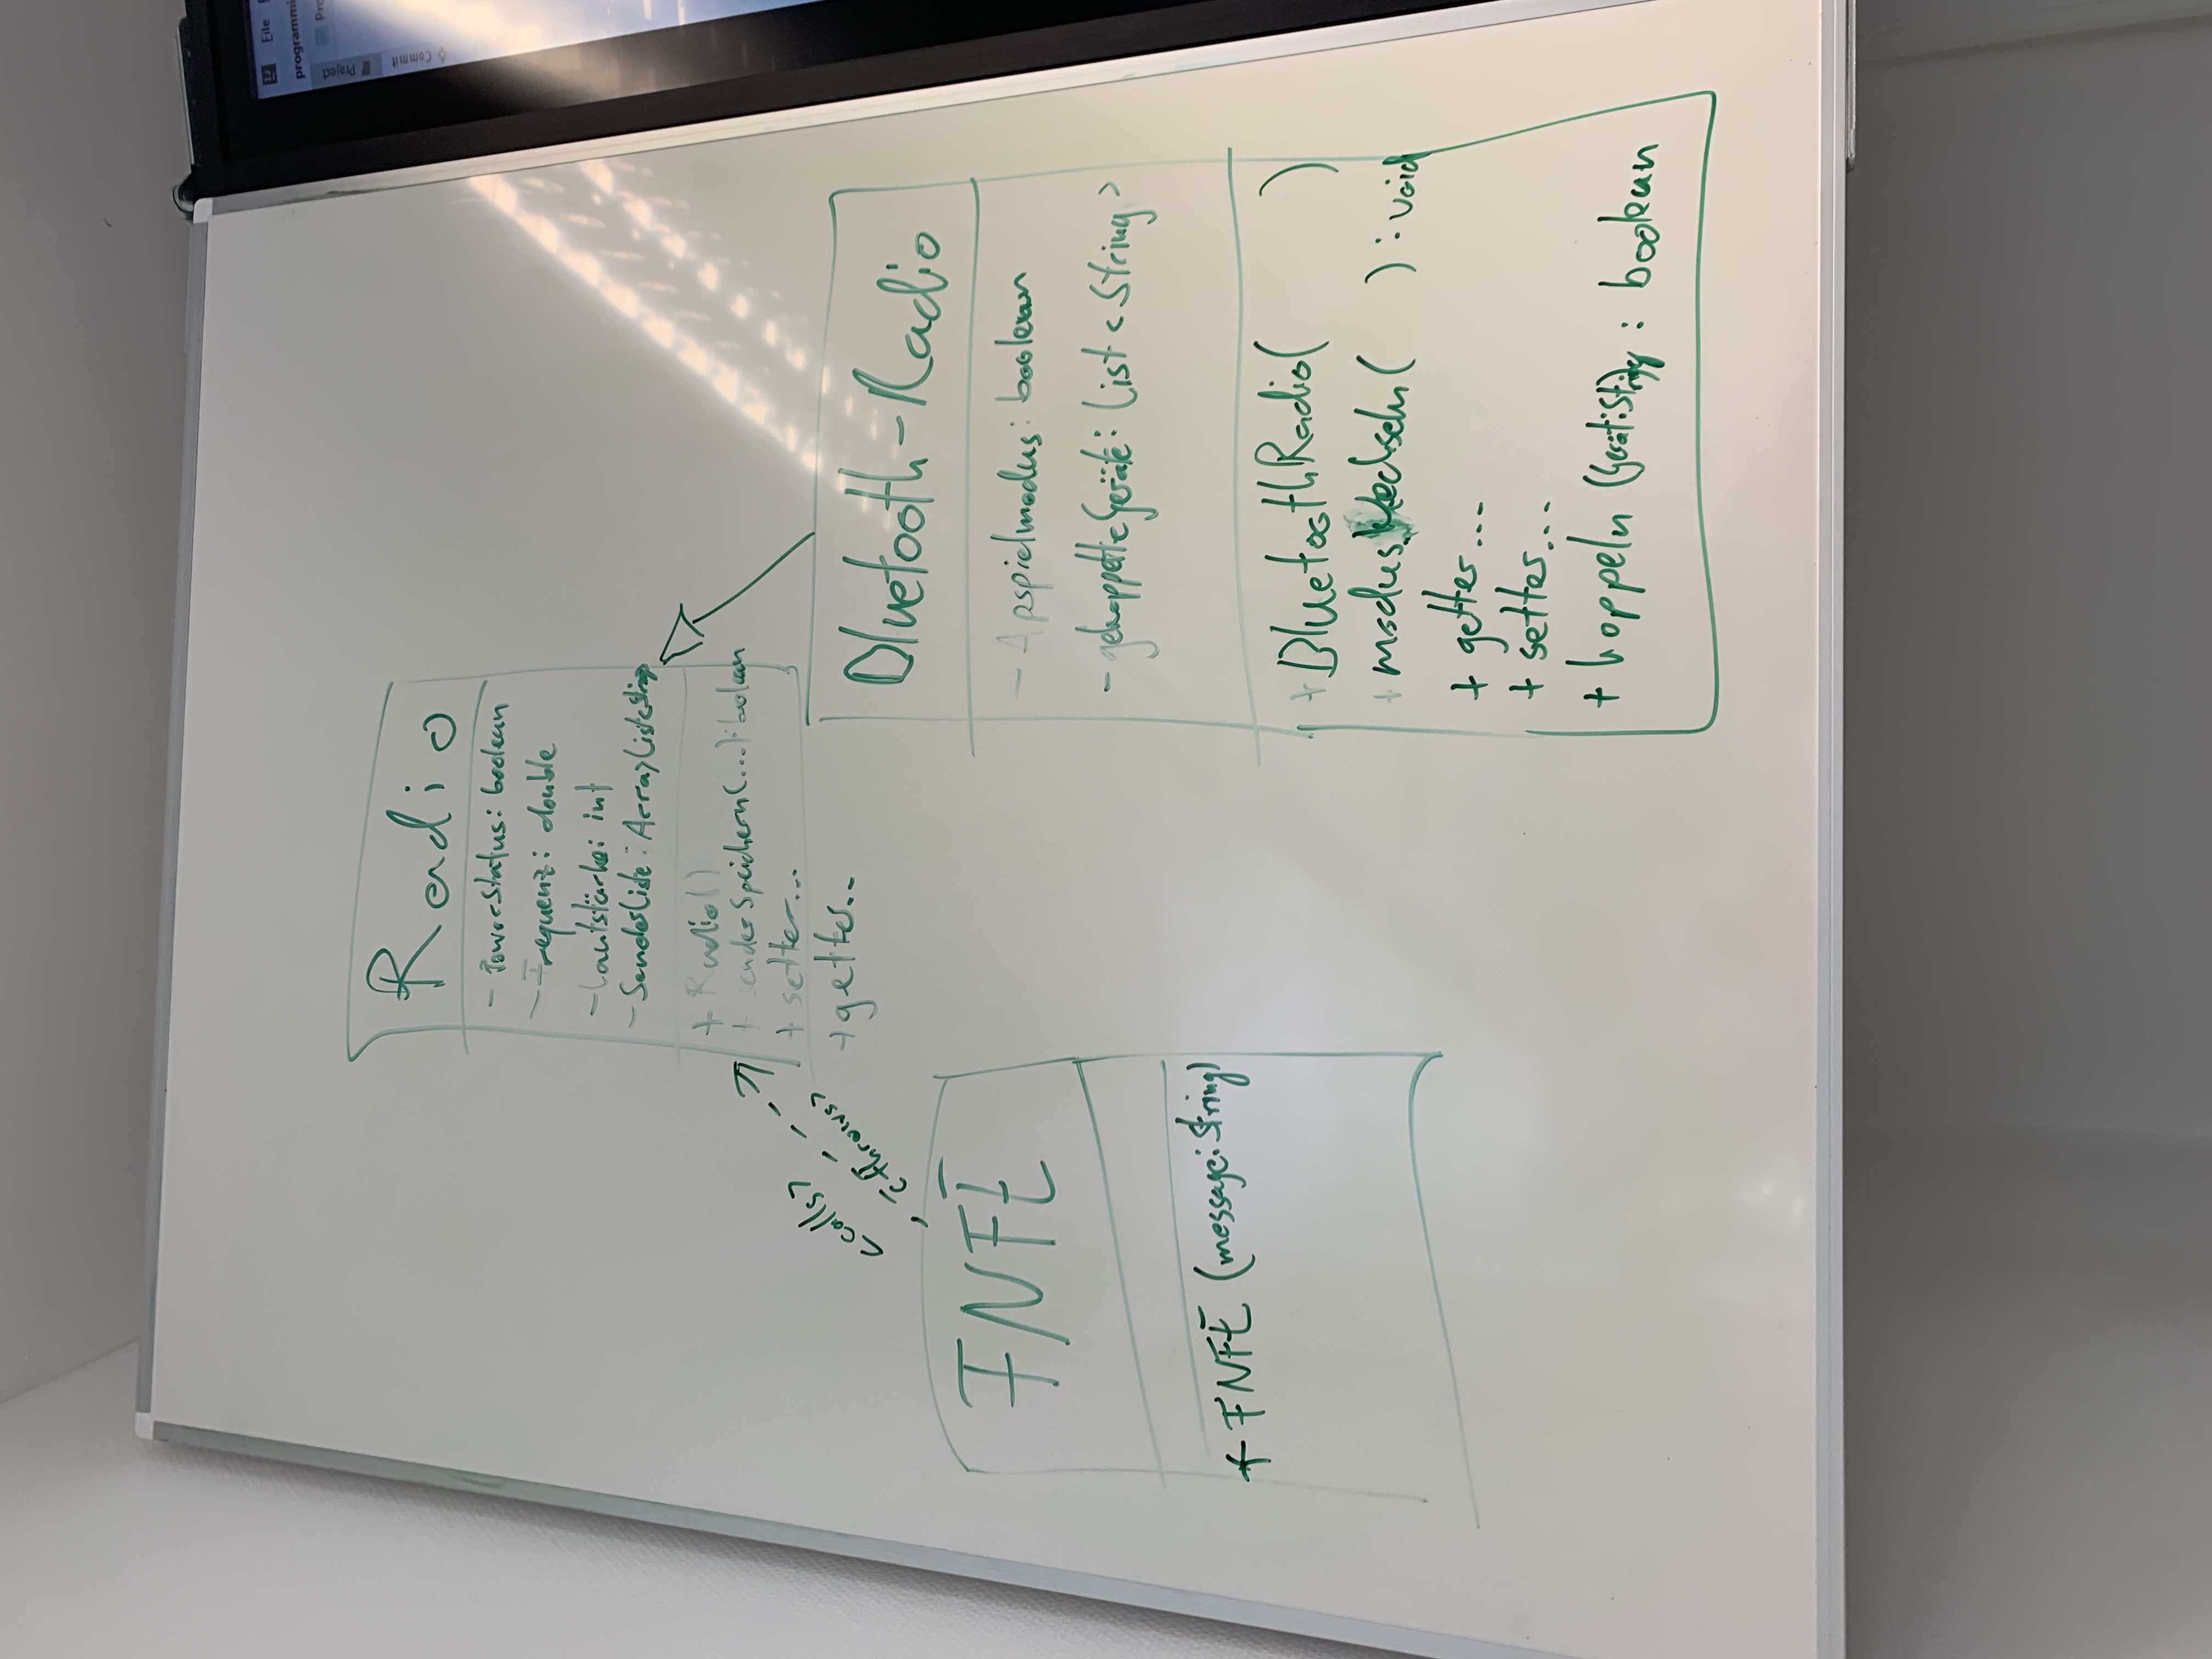 Radio
- PowerStatus: boolean
- Frequenz: double
- Lautstärke: int
- SenderListe: ArrayList<String>
+ Radio()
+ senderSpeichern(...): boolean
+ setter...
+ getter..
<calls>
<throws>
FNFE
+ FNFE (message: String)
Bluetooth-Radio
- Apspielmodus: boolean
- gekoppelteGeräte: List<String>
+ BluetoothRadio( )
+ modusWechseln( ): void
+ getter...
+ setter...
+ koppeln (Gerät:String): boolean
File
programmi
Project
Commit